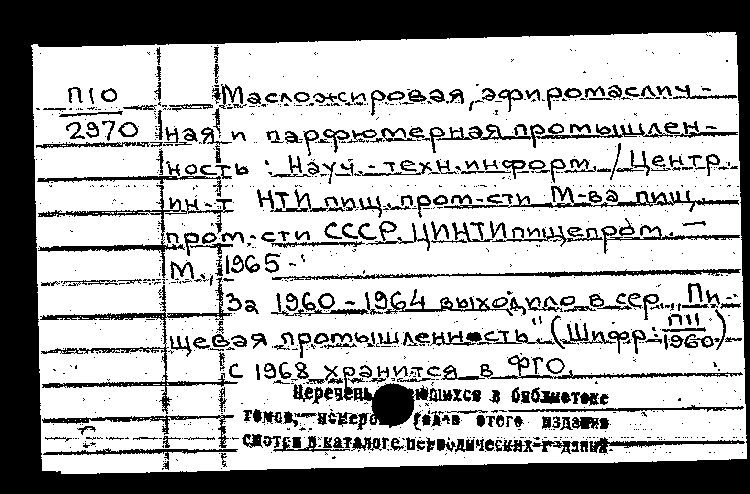 П10
2970
Масложировая, эфиромаслич-
ная и парфюмерная промышлен-
ность : Науч.-техн.информ. / Центр.
ин-т НТИ пищ. пром-сти М-ва пищ.
пром-сти СССР. ЦИНТИпищепром. —
М., 1965 -
За 1960-1964 выходило в сер. "Пи-
щевая промышленность" (Шифр: П11/1960)
С 1968 хранится в ФГО.
Перечень имеющихся в библиотеке
томов, номеров, годов этого издания
смотри в каталоге периодических изданий